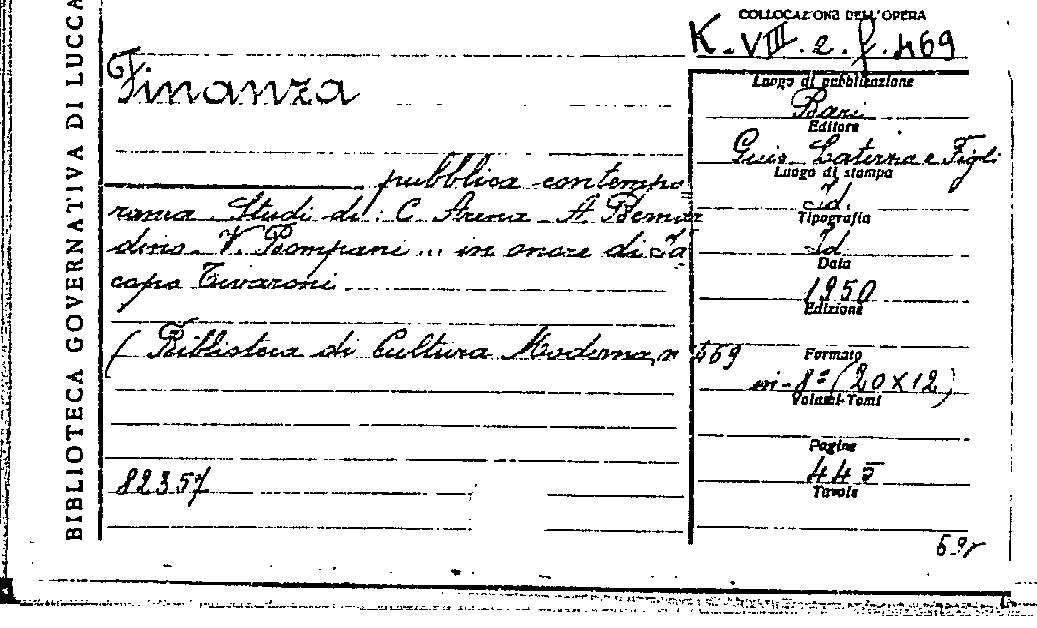 BIBLIOTECA GOVERNATIVA DI LUCCA
COLLOCAZIONE DELL'OPERA
K.VIII.2.f.469
Finanza
pubblica contempo
ranea Studi di: C. Arena - A. Bernar
dino - V. Bompani ... in onore di Ja
copo Tivaroni
( Biblioteca di Cultura Moderna, n 469
82357
Luogo di pubblicazione
Bari
Editore
Gius. Laterza e Figli
Luogo di stampa
Id.
Tipografia
Id
Data
1950
Edizione
Formato
in-8° (20x12)
Volumi-Tomi
Pagine
445
Tavole